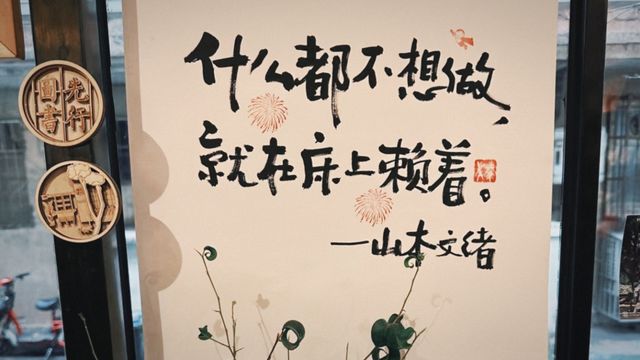 什么都不想做，
就在床上赖着。
—山本文绪
先行
圖書